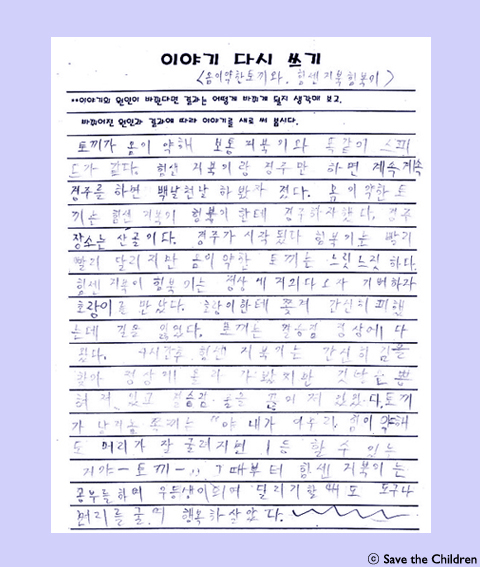 이야기 다시 쓰기
<몸이약한토끼와, 힘센거북힘북이>
**이야기의 원인이 바뀐다면 결과는 어떻게 바뀌게 될지 생각해 보고,
바뀌어진 원인과 결과에 따라 이야기를 새로 써 봅시다.
토끼가 몸이 약해 보통 거북이와 똑같이 스피
드가 같다. 힘센 거북이랑 경주만 하면 계속계속
경주를 하면 백날천날 하봤자 졌다. 몸이약한토
끼는 힘센 거북이 힘북이한테 경주하자했다. 경주
장소는 산골이다. 경주가 시작됬다 힘북기는 빵기
빨리 달리지만 몸이약한 토끼는 느릿느짓 하다.
힘센 거북이 힘북기는 정상에 거의다오자
호랑이를 만났다. 호랑이한테 쫓겨 간신히 피했
는데 길을 잃었다. 토끼는 결승점 정상에 다
왔다. 1시간후 힘센 거북기는 간신히 길을
찾아 정상에 올라 가 봤지만 깃발은 뽄
혀 져 있고 결승점 줄은 끊어져 있었다.토끼
가 남기놈 쪽지는 "야 내가 아무리 힘이 약해
도 머리가 잘 굴려지면 1등 할 수 있는
거야-토끼-" 그때부터 힘센 거북이는
공부를하며 우등생이되며 달리기할 때도 도구나
머리를굴며 행복하살았다.
© Save the Children